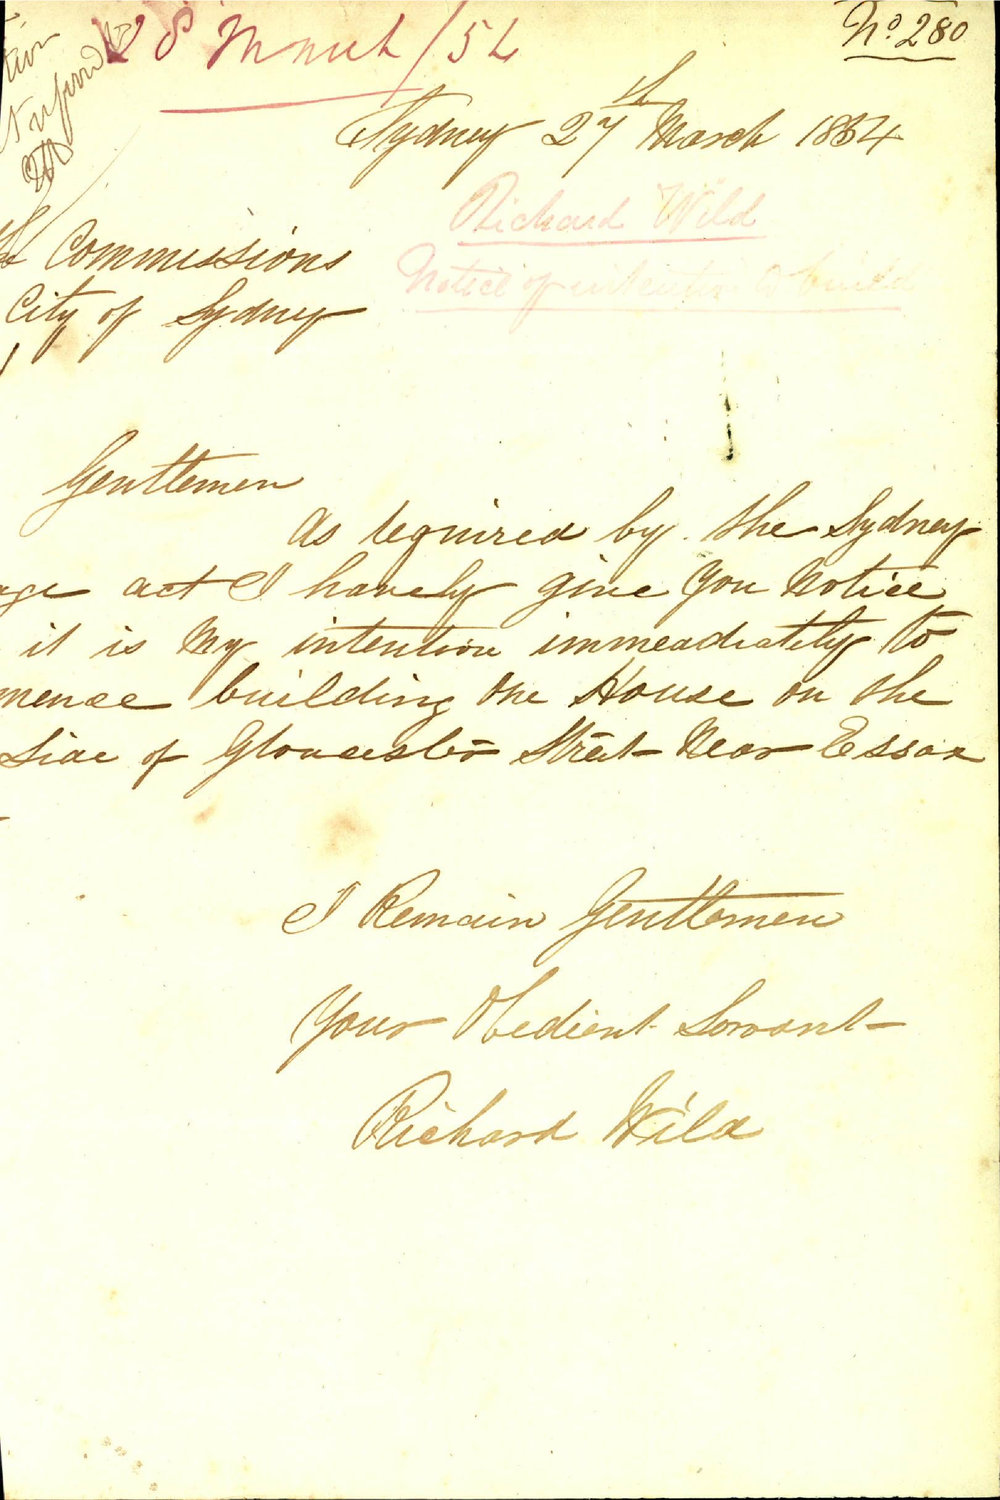 28 March/54
No 280
Sydney 27th March 1854
Richard Wild
Notice of intention to build
Commissions
City of Sydney
Gentlemen
As required by the Sydney
age act I harely give You Notice
it is My intention immeadiatily to
mence building One House on the
Side of Gloucester Street Near Essax
I Remain Gentlemen
Your Obedient Servant
Richard Wild